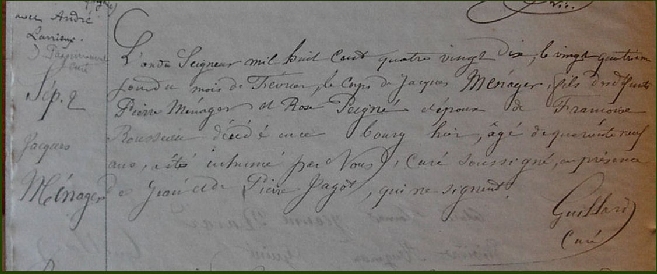 avec André
Sép. 2
Jacques
Ménager
L'an du Seigneur mil huit cent quatre vingt dix, le vingt quatrieme
jour du mois de Février, le Corps de Jacques Ménager, fils des défunts
Pierre Menager et Rose Peigné époux de Françoise
Rousseau décédé en ce bourg hier, âgé de quarante neuf
ans, a été inhumé par Nous, Curé soussigné, en présence
de Jean et de Pierre Jagot, qui ne signent.
Guillard
Curé